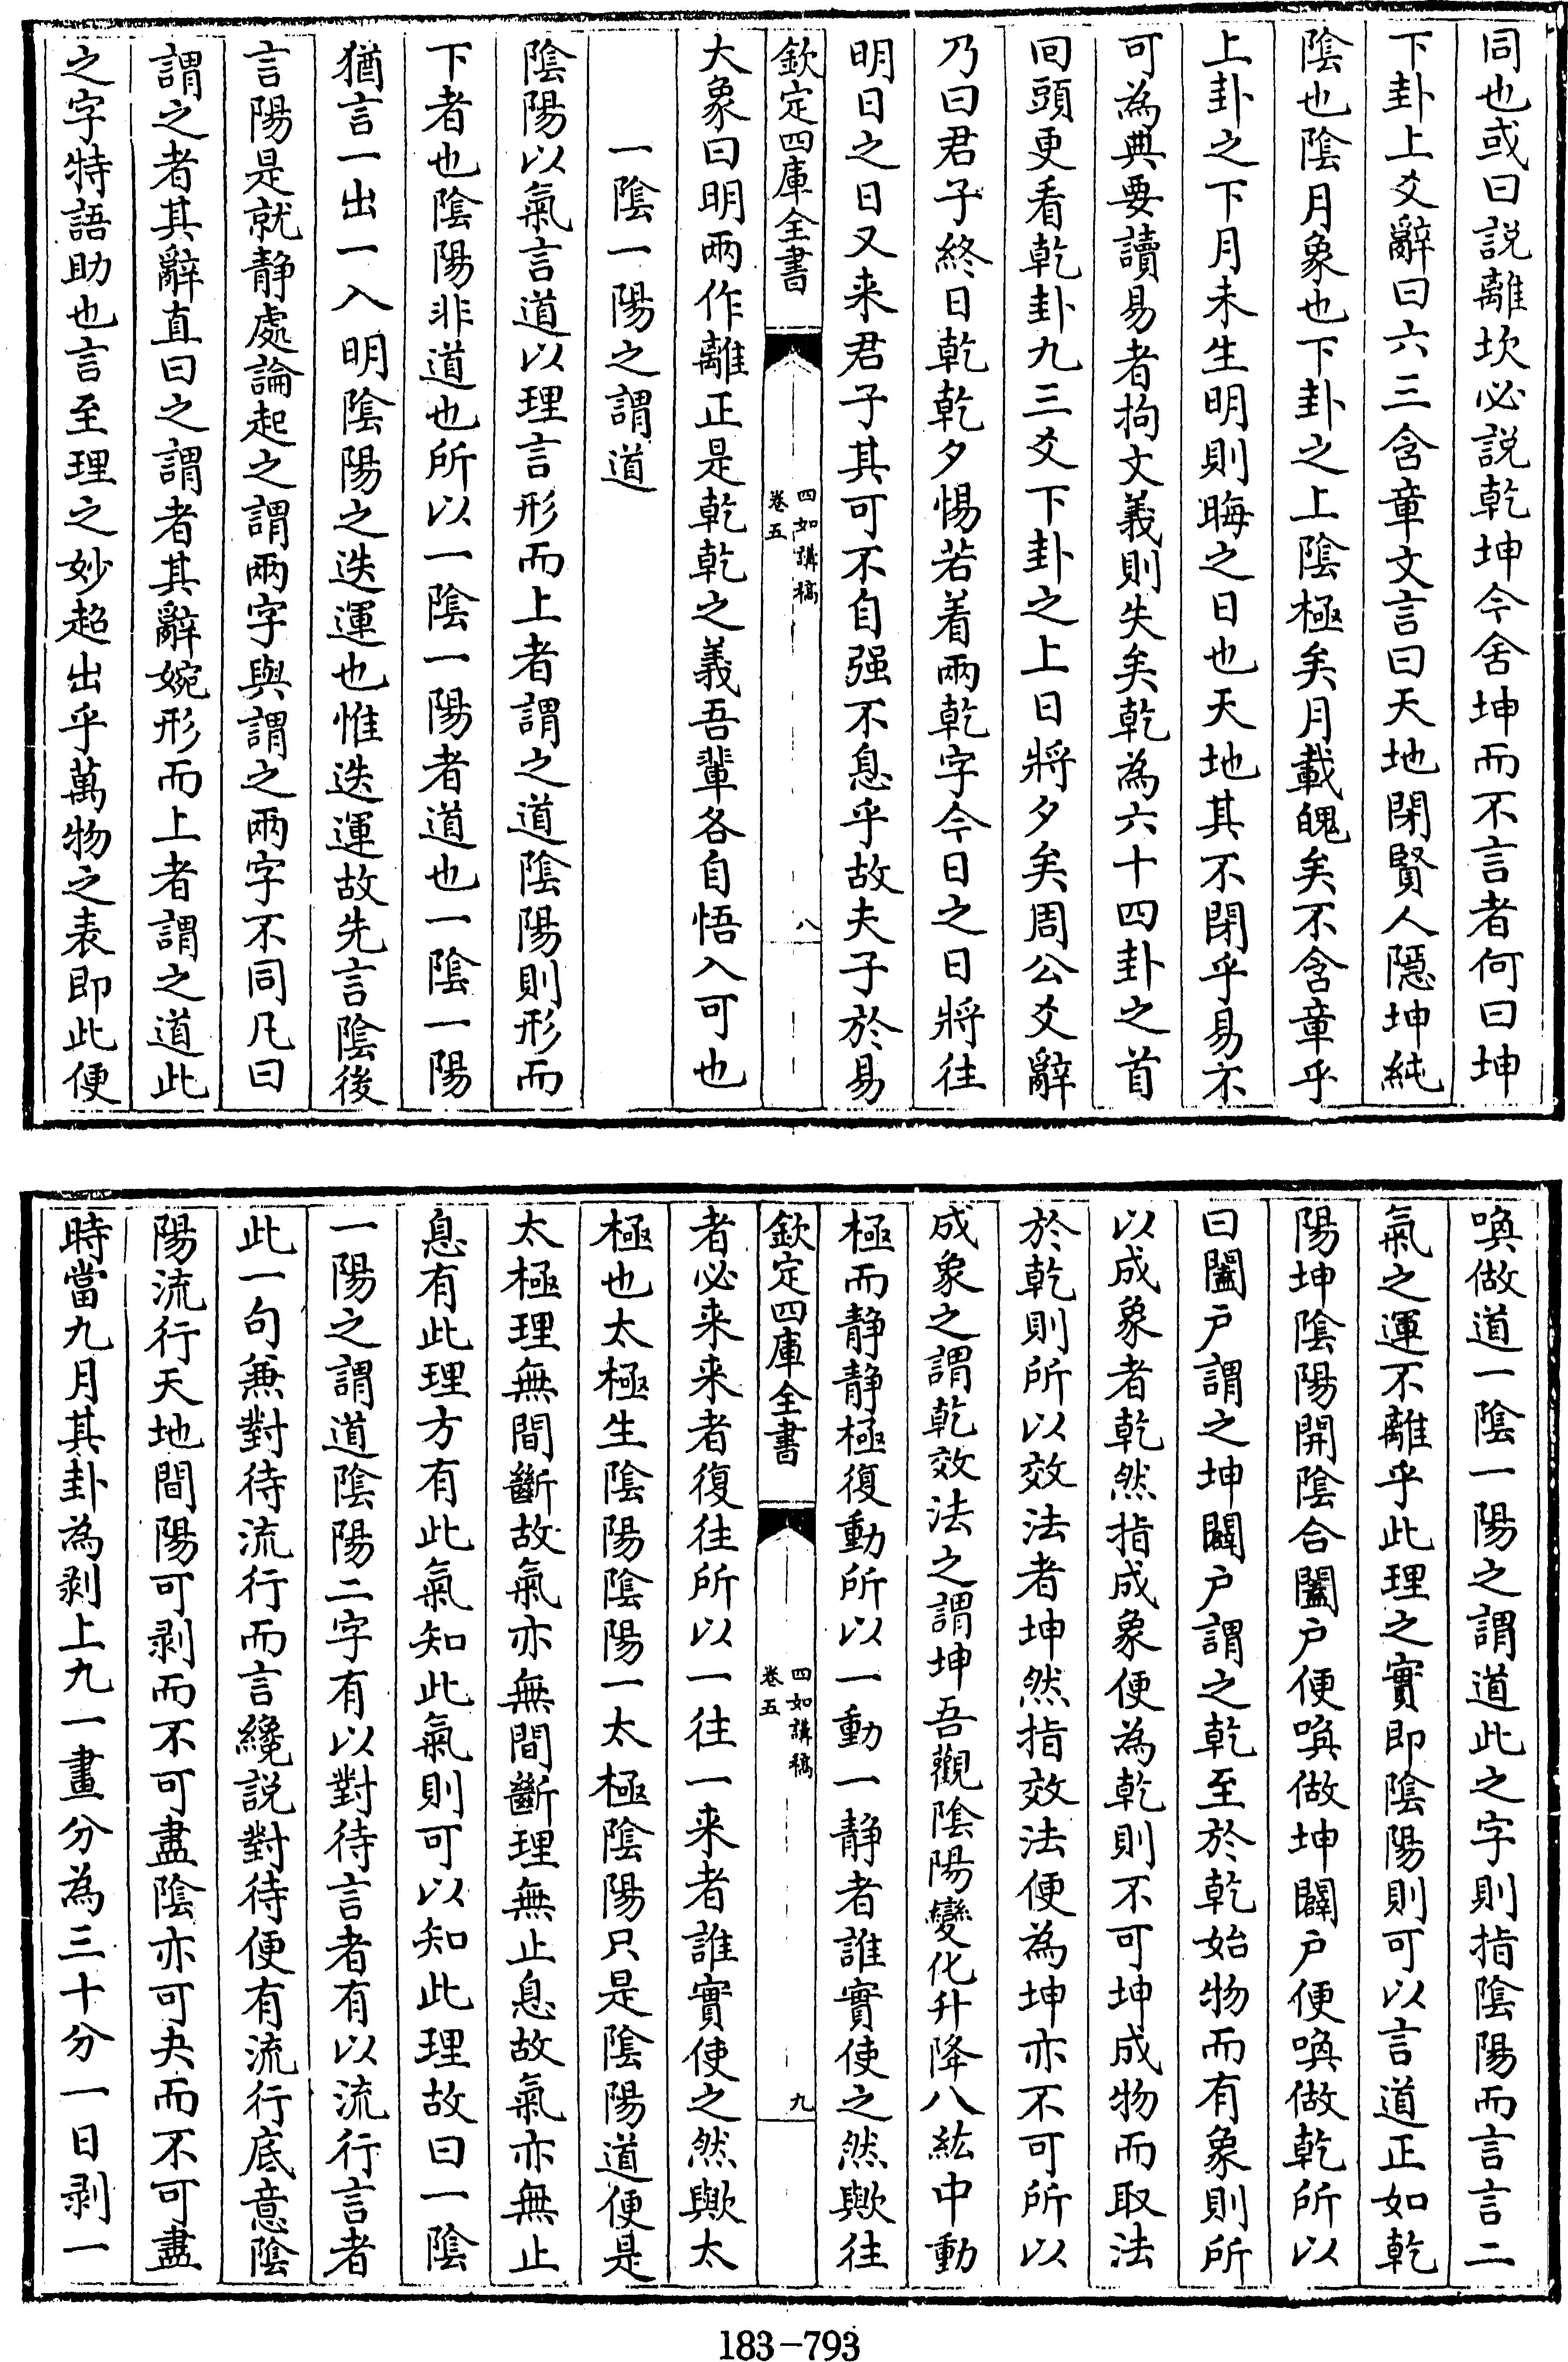 同也或曰説離坎必説乾坤今舍坤而不言者何曰坤
下卦上爻辭曰六三含章文言曰天地閉賢人隱坤純
陰也陰月象也下卦之上陰極矣月載魄矣不含章乎
上卦之下月未生明則晦之日也天地其不閉乎易不
可為典要讀易者拘文義則失矣乾為六十四卦之首
回頭更看乾卦九三爻下卦之上日將夕矣周公爻辭
乃曰君子終日乾乾夕惕若着兩乾字今日之日將往
明日之日又来君子其可不自强不息乎故夫子於易
欽定四庫全書
四如講稿
卷五
八
大象曰明兩作離正是乾乾之義吾輩各自悟入可也
一陰一陽之謂道
陰陽以氣言道以理言形而上者謂之道陰陽則形而
下者也陰陽非道也所以一陰一陽者道也一陰一陽
猶言一出一入明陰陽之迭運也惟迭運故先言陰後
言陽是就静處論起之謂兩字與謂之兩字不同凡曰
謂之者其辭直曰之謂者其辭婉形而上者謂之道此
之字特語助也言至理之妙超出乎萬物之表即此便
喚做道一陰一陽之謂道此之字則指陰陽而言言二
氣之運不離乎此理之實即陰陽則可以言道正如乾
陽坤陰陽開陰合闔户便喚做坤闢户便喚做乾所以
曰闔户謂之坤闢户謂之乾至於乾始物而有象則所
以成象者乾然指成象便為乾則不可坤成物而取法
於乾則所以效法者坤然指效法便為坤亦不可所以
成象之謂乾效法之謂坤吾觀陰陽變化升降八紘中動
極而静静極復動所以一動一静者誰實使之然歟往
欽定四庫全書
四如講稿
卷五
九
者必来来者復往所以一往一来者誰實使之然歟太
極也太極生陰陽陰陽一太極陰陽只是陰陽道便是
太極理無間斷故氣亦無間斷理無止息故氣亦無止
息有此理方有此氣知此氣則可以知此理故曰一陰
一陽之謂道陰陽二字有以對待言者有以流行言者
此一句兼對待流行而言纔説對待便有流行底意陰
陽流行天地間陽可剥而不可盡陰亦可夬而不可盡
時當九月其卦為剥上九一畫分為三十分一日剥一
183-793